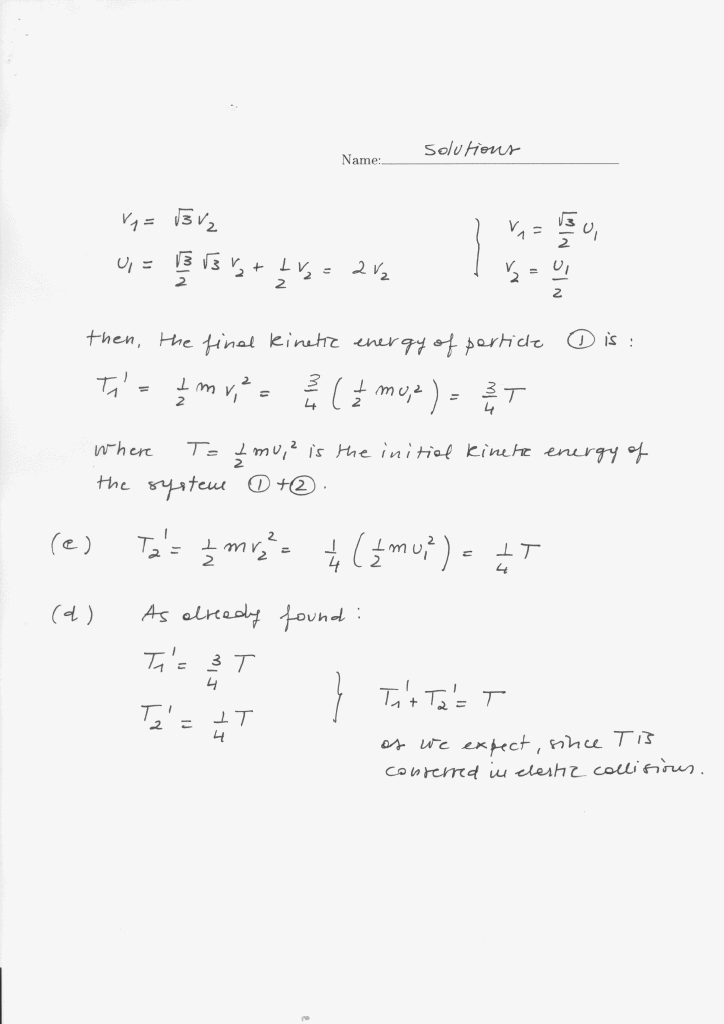 Name: Solutions
v₁ = √3 v₂
u₁ = √3/2 √3 v₂ + 1/2 v₂ = 2 v₂ } v₁ = √3/2 u₁
v₂ = u₁/2
then, the final kinetic energy of particle ① is :
T₁' = 1/2 m v₁² = 3/4 ( 1/2 m u₁² ) = 3/4 T
where T = 1/2 m u₁² is the initial kinetic energy of
the system ① + ② .
(c) T₂' = 1/2 m v₂² = 1/4 ( 1/2 m u₁² ) = 1/4 T
(d) As already found :
T₁' = 3/4 T
T₂' = 1/4 T } T₁' + T₂' = T
as we expect, since T is
conserved in elastic collisions.